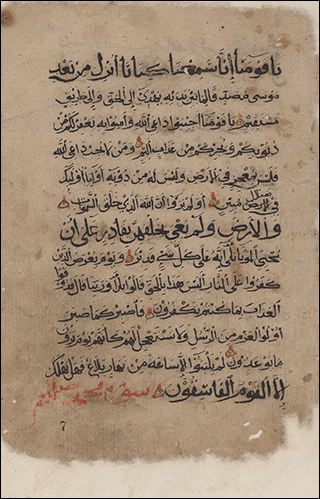 يا قومنا إنا سمعنا كتابا أنزل من بعد
موسى مصدقا لما بين يديه يهدي إلى الحق وإلى طريق
مستقيم يا قومنا أجيبوا داعي الله وآمنوا به يغفر لكم من
ذنوبكم ويجركم من عذاب أليم ومن لا يجب داعي الله
فليس بمعجز في الأرض وليس له من دونه أولياء أولئك
في ضلال مبين أولم يروا أن الله الذي خلق السموات
والأرض ولم يعي بخلقهن بقادر على أن
يحيي الموتى بلى إنه على كل شيء قدير ويوم يعرض الذين
كفروا على النار أليس هذا بالحق قالوا بلى وربنا قال فذوقوا
العذاب بما كنتم تكفرون فاصبر كما صبر
أولوا العزم من الرسل ولا تستعجل لهم كأنهم يوم يرون
ما يوعدون لم يلبثوا إلا ساعة من نهار بلاغ فهل يهلك
إلا القوم الفاسقون سورة محمد
7